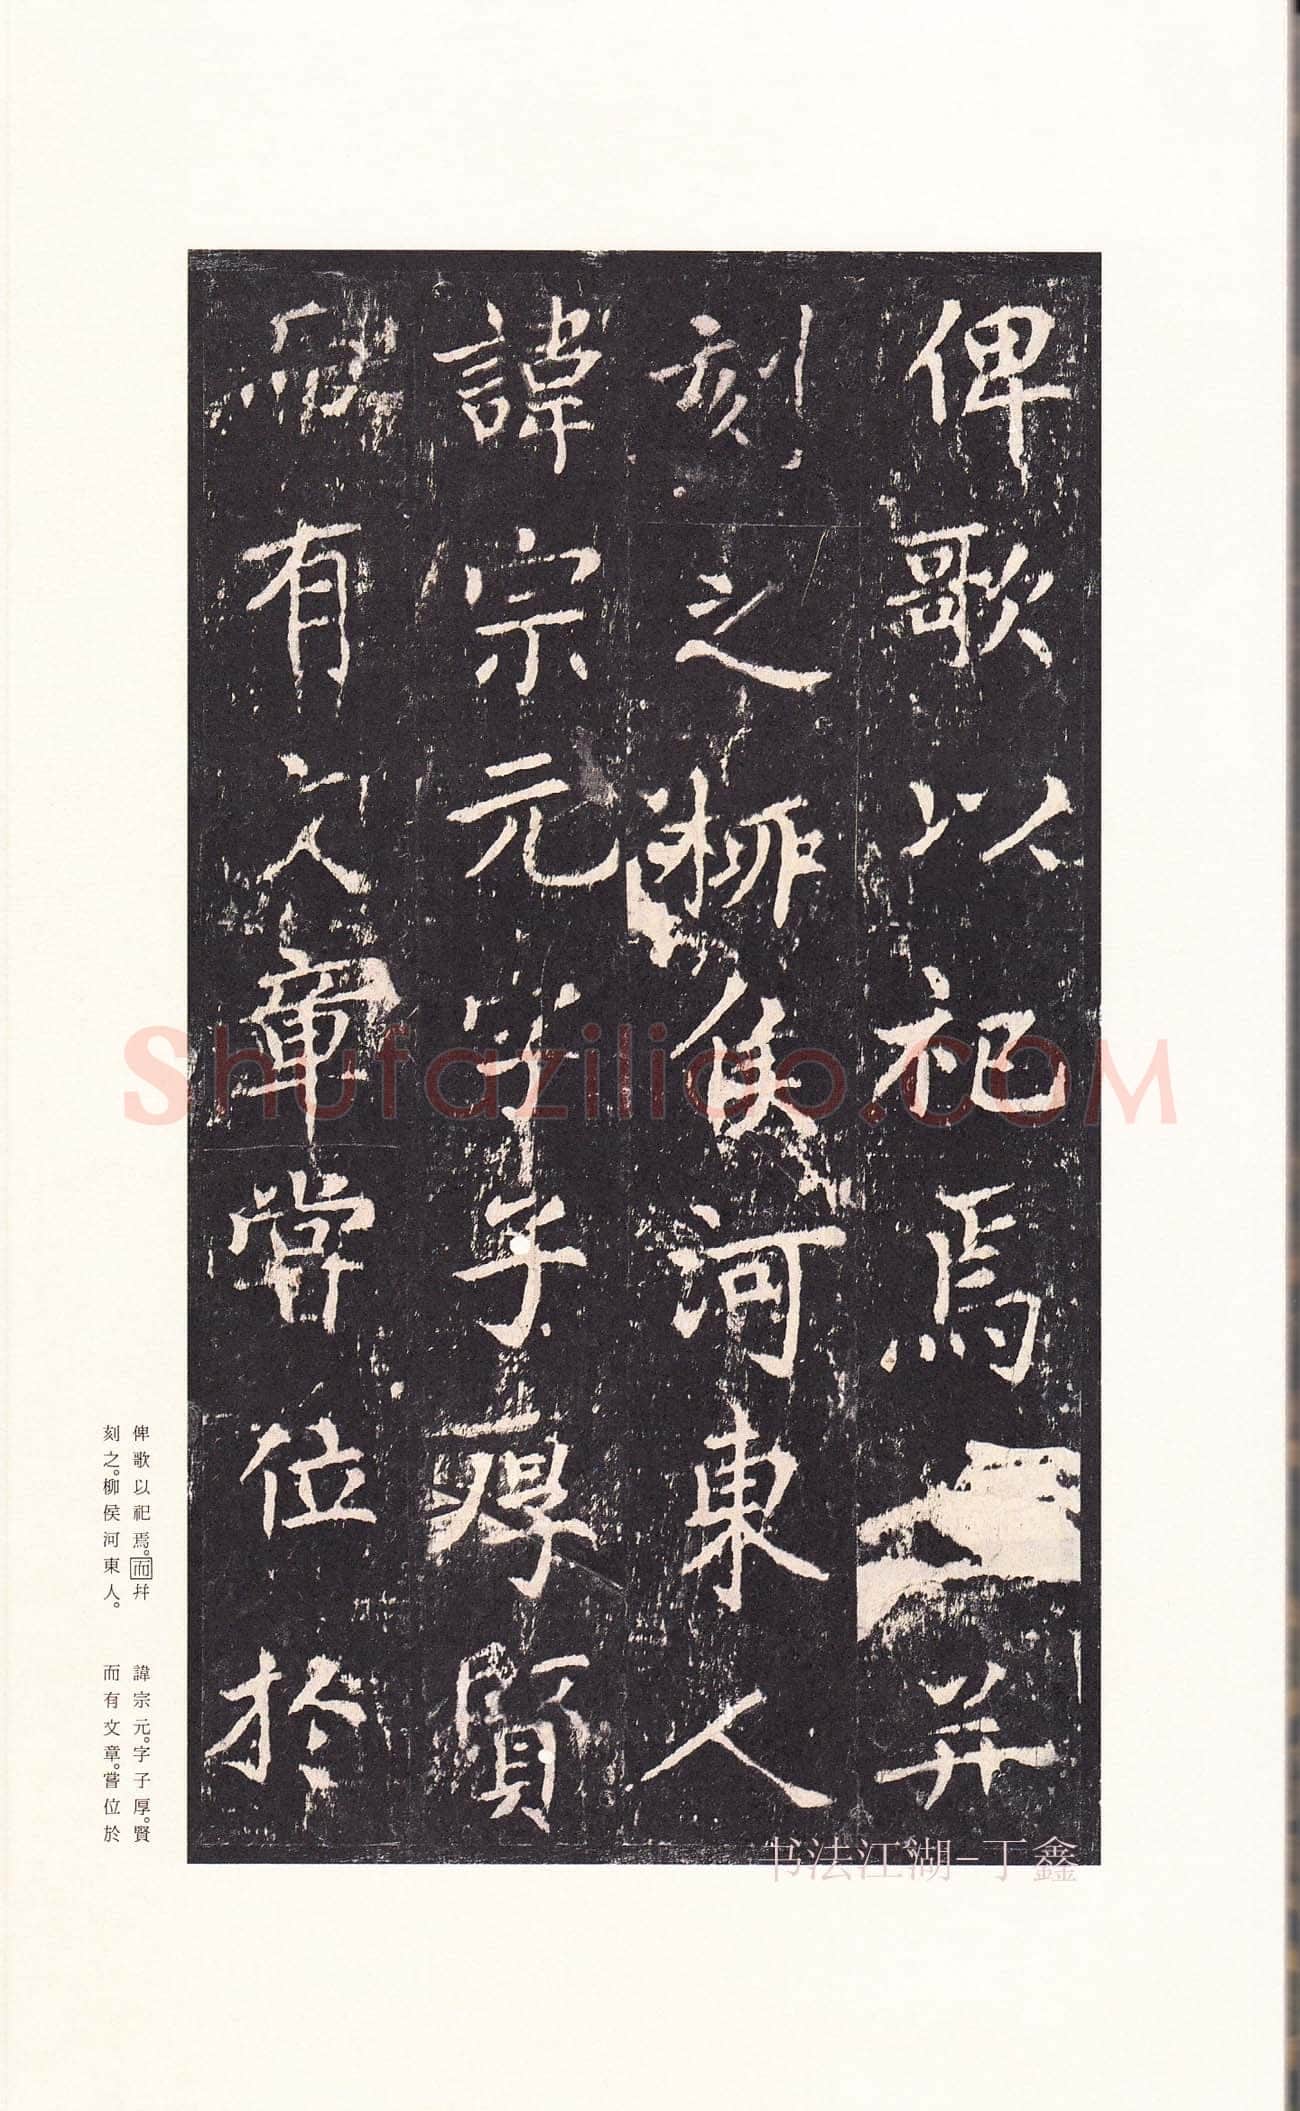 俾歌以祀焉并
刻之柳侯河東人
諱宗元字子厚賢
而有文章嘗位於
俾歌以祀焉。而幷
刻之。柳侯河東人。
諱宗元。字子厚。賢
而有文章。嘗位於
Shufaziliao.COM
书法江湖-丁鑫